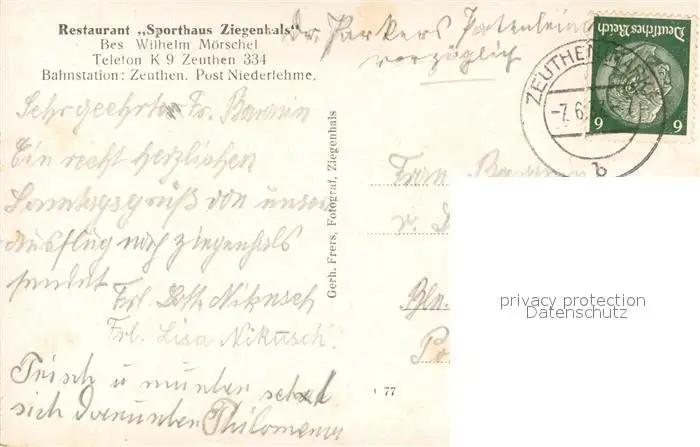 Restaurant „Sporthaus Ziegenhals"
Bes Wilhelm Mörschel
Telefon K 9 Zeuthen 334
Bahnstation: Zeuthen. Post Niederlehme.
Dr. Parkers
vorzüglich
Deutsches Reich
6 6
ZEUTHEN
-7.6.
b
Sehr geehrte Fr.
Ein recht herzlichen
Sonntagsgruß von unsern
Ausflug nach Ziegenhals
sendet
Frl. Loth Nikusch
Frl. Lisa Nikusch.
Frisch u munter
sich darunter Philomena
Gerh. Frers, Fotograf, Ziegenhals
Frau
v.
Bln.
Po
77
privacy protection
Datenschutz